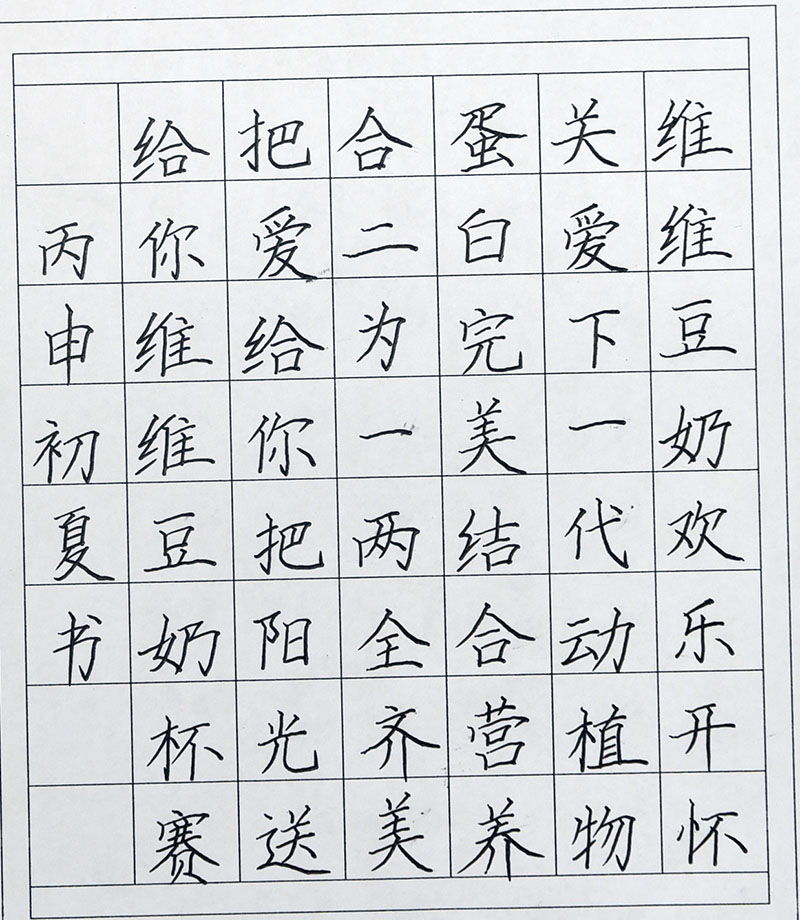 维维豆奶欢乐开怀
关爱下一代动植物
蛋白完美结合营养
合二为一两全齐美
把爱给你把阳光送
给你维维豆奶杯赛
丙申初夏书